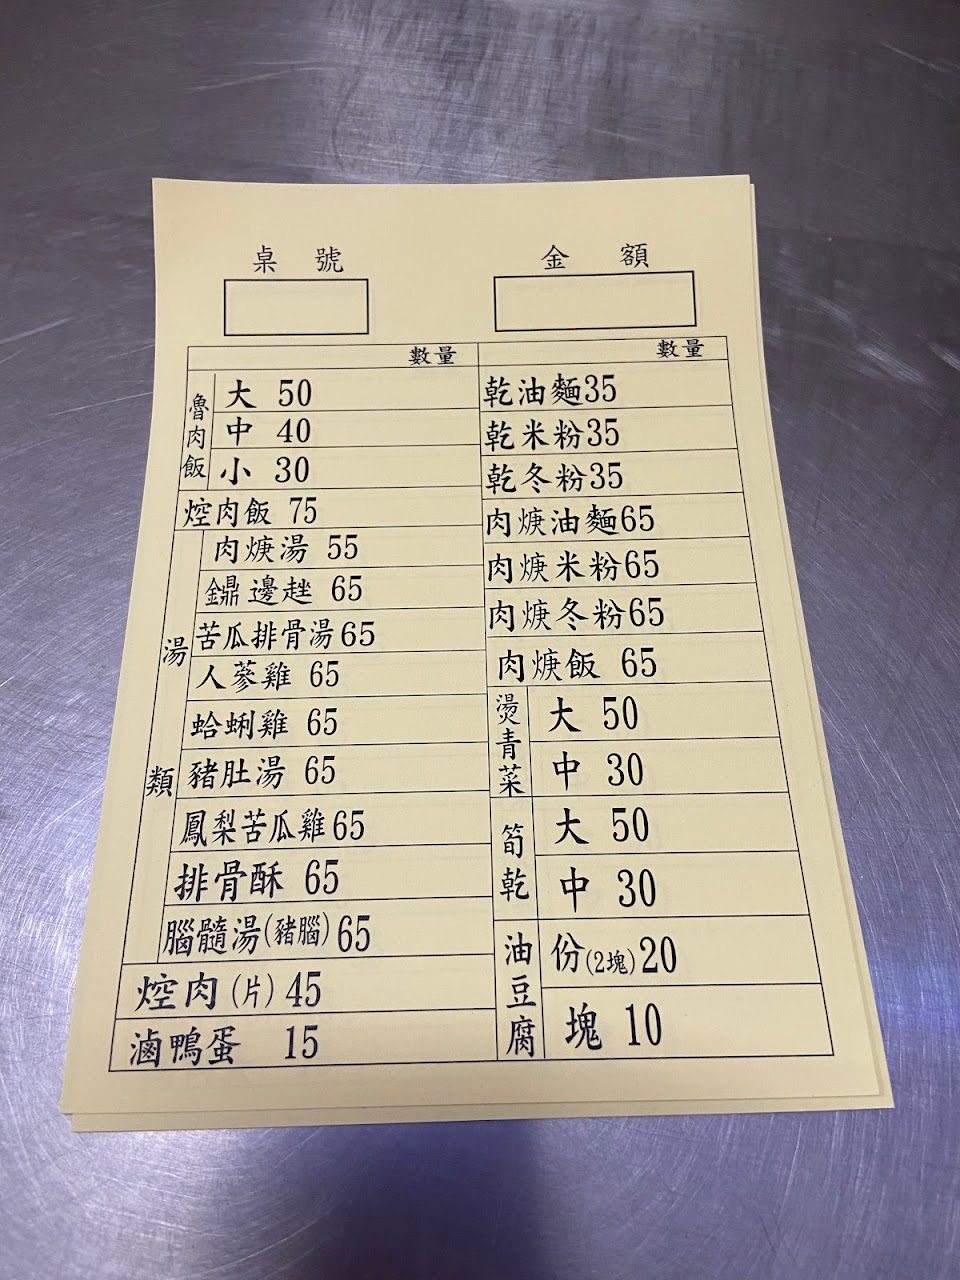 桌號
金額
數量
魯肉飯
大 50
中 40
小 30
焢肉飯 75
湯類
肉焿湯 55
鐤邊趖 65
苦瓜排骨湯65
人蔘雞 65
蛤蜊雞 65
豬肚湯 65
鳳梨苦瓜雞65
排骨酥 65
腦髓湯(豬腦)65
焢肉(片)45
滷鴨蛋 15
數量
乾油麵35
乾米粉35
乾冬粉35
肉焿油麵65
肉焿米粉65
肉焿冬粉65
肉焿飯 65
燙青菜
大 50
中 30
筍乾
大 50
中 30
油豆腐
份(2塊)20
塊 10